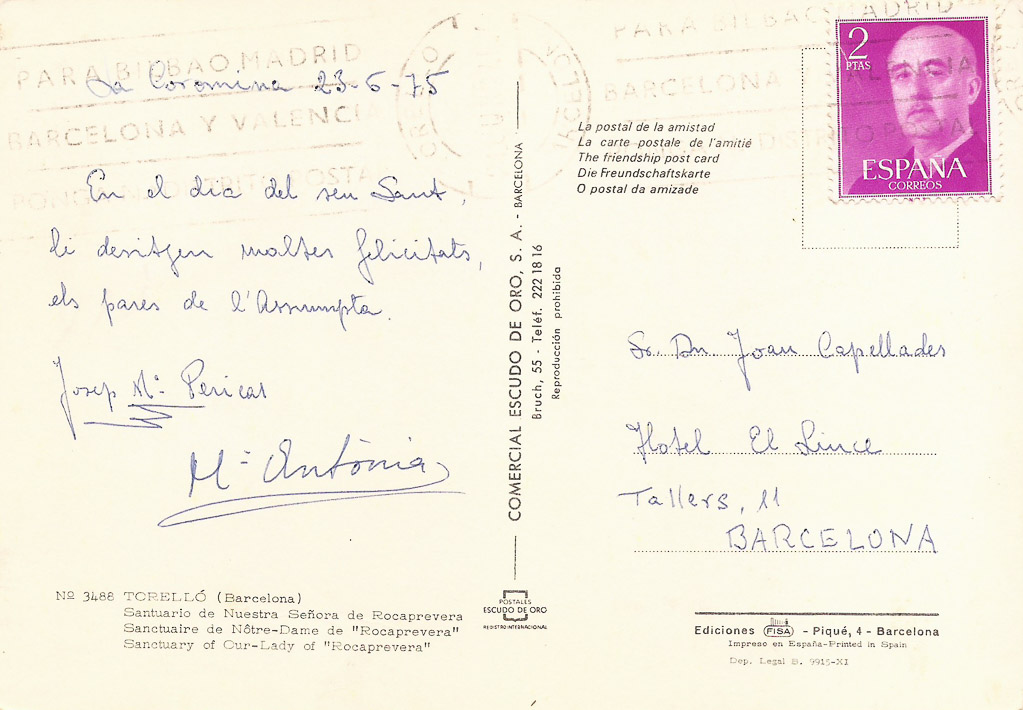 PARA BILBAO, MADRID
BARCELONA Y VALENCI
La Coromina 23-6-75
En el dia del seu Sant,
li desitgen moltes felicitats,
els pares de l'Assumpta.
Josep Mª Pericas
Mª Antònia
Nº 3488 TORELLÓ (Barcelona)
Santuario de Nuestra Señora de Rocaprevera
Sanctuaire de Nôtre-Dame de "Rocaprevera"
Sanctuary of Our-Lady of "Rocaprevera"
COMERCIAL ESCUDO DE ORO, S. A. - BARCELONA
Bruch, 55 - Teléf. 222 18 16
Reproducción prohibida
POSTALES
ESCUDO DE ORO
REGISTRO INTERNACIONAL
PARA BILBAO, MADRID
BARCELONA VALENCIA
DISTRITO POSTA
La postal de la amistad
La carte postale de l'amitié
The friendship post card
Die Freundschaftskarte
O postal da amizade
2
PTAS
ESPAÑA
CORREOS
Sr. Dn Joan Capellades
Hotel El Lince
Tallers, 11
BARCELONA
Ediciones FISA - Piqué, 4 - Barcelona
Impreso en España-Printed in Spain
Dep. Legal B. 9915-XI